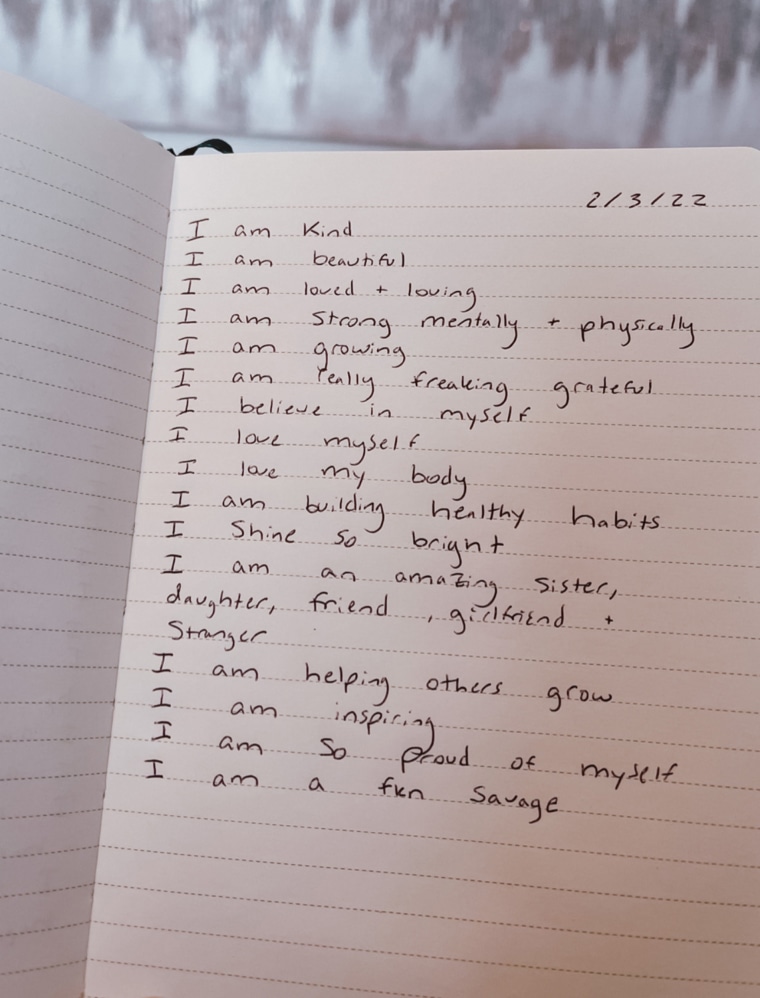 2/3/22
I am Kind
I am beautiful
I am loved + loving
I am Strong mentally + physically
I am growing
I am really freaking grateful
I believe in myself
I love myself
I love my body
I am building healthy habits
I Shine so bright
I am an amazing sister,
daughter, friend, girlfriend +
Stranger
I am helping others grow
I am inspiring
I am so proud of myself
I am a fkn Savage